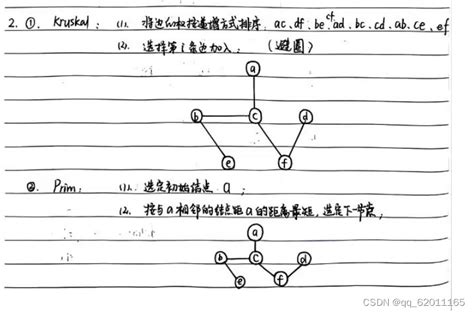 2. ①. Kruskal: (1). 将边的权按递增方式排序. ac. df. be. cf. ad. bc. cd. ab. ce. ef
(2). 选择第i条边加入. (避圈)
a
b c d
e f
②. Prim: (1). 选定初始结点 a;
(2). 按与a相邻的结点距a的距离最短, 选定下一节点;
a
b c d
e f
CSDN @qq_62011165